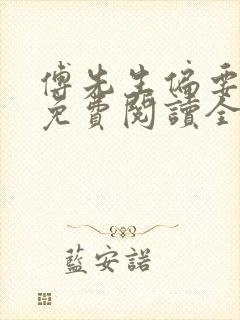 傅先生偏要
免費閱讀全
藍安諾